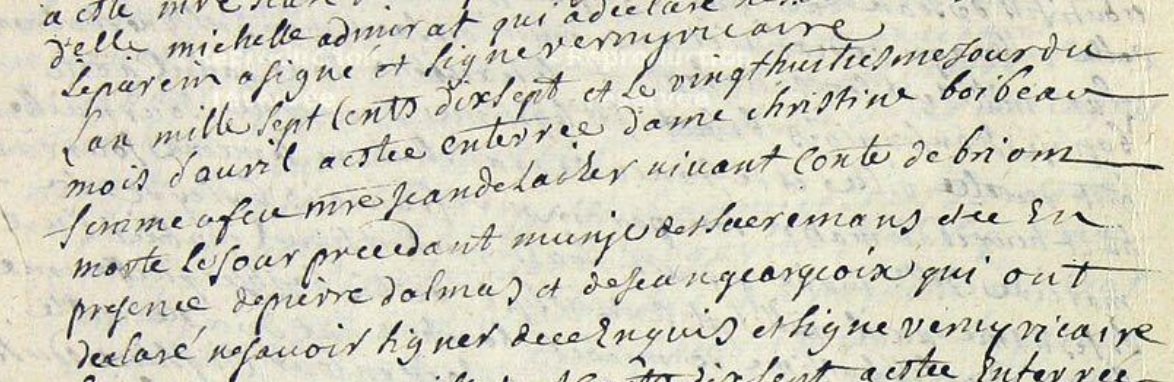 a este mre
d'elle michelle admirat qui a declaré
le parein a signé et signe verny vicaire
l'an mille sept cents dixsept et le vingthuitiesme jour du
mois d'auril a estee enterree dame christine boibeau
femme a feu mre jean de laiker vivant conte de briom
morte le jour precedant munje des sacremans etce En
presence de pierre dalmas et de jean georgeoix qui ont
declaré ne sauoir signer de ce Enquis et signe verny vicaire
dixsept a estee Enterrée